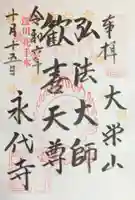 奉拝
大栄山
弘法大師
歓喜天尊
永代寺
令和六年
十月十五日